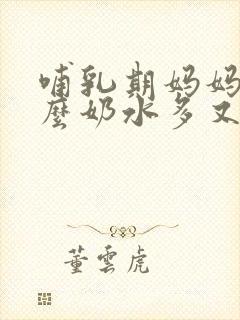 哺乳期妈妈
麼奶水多又
董雲虎